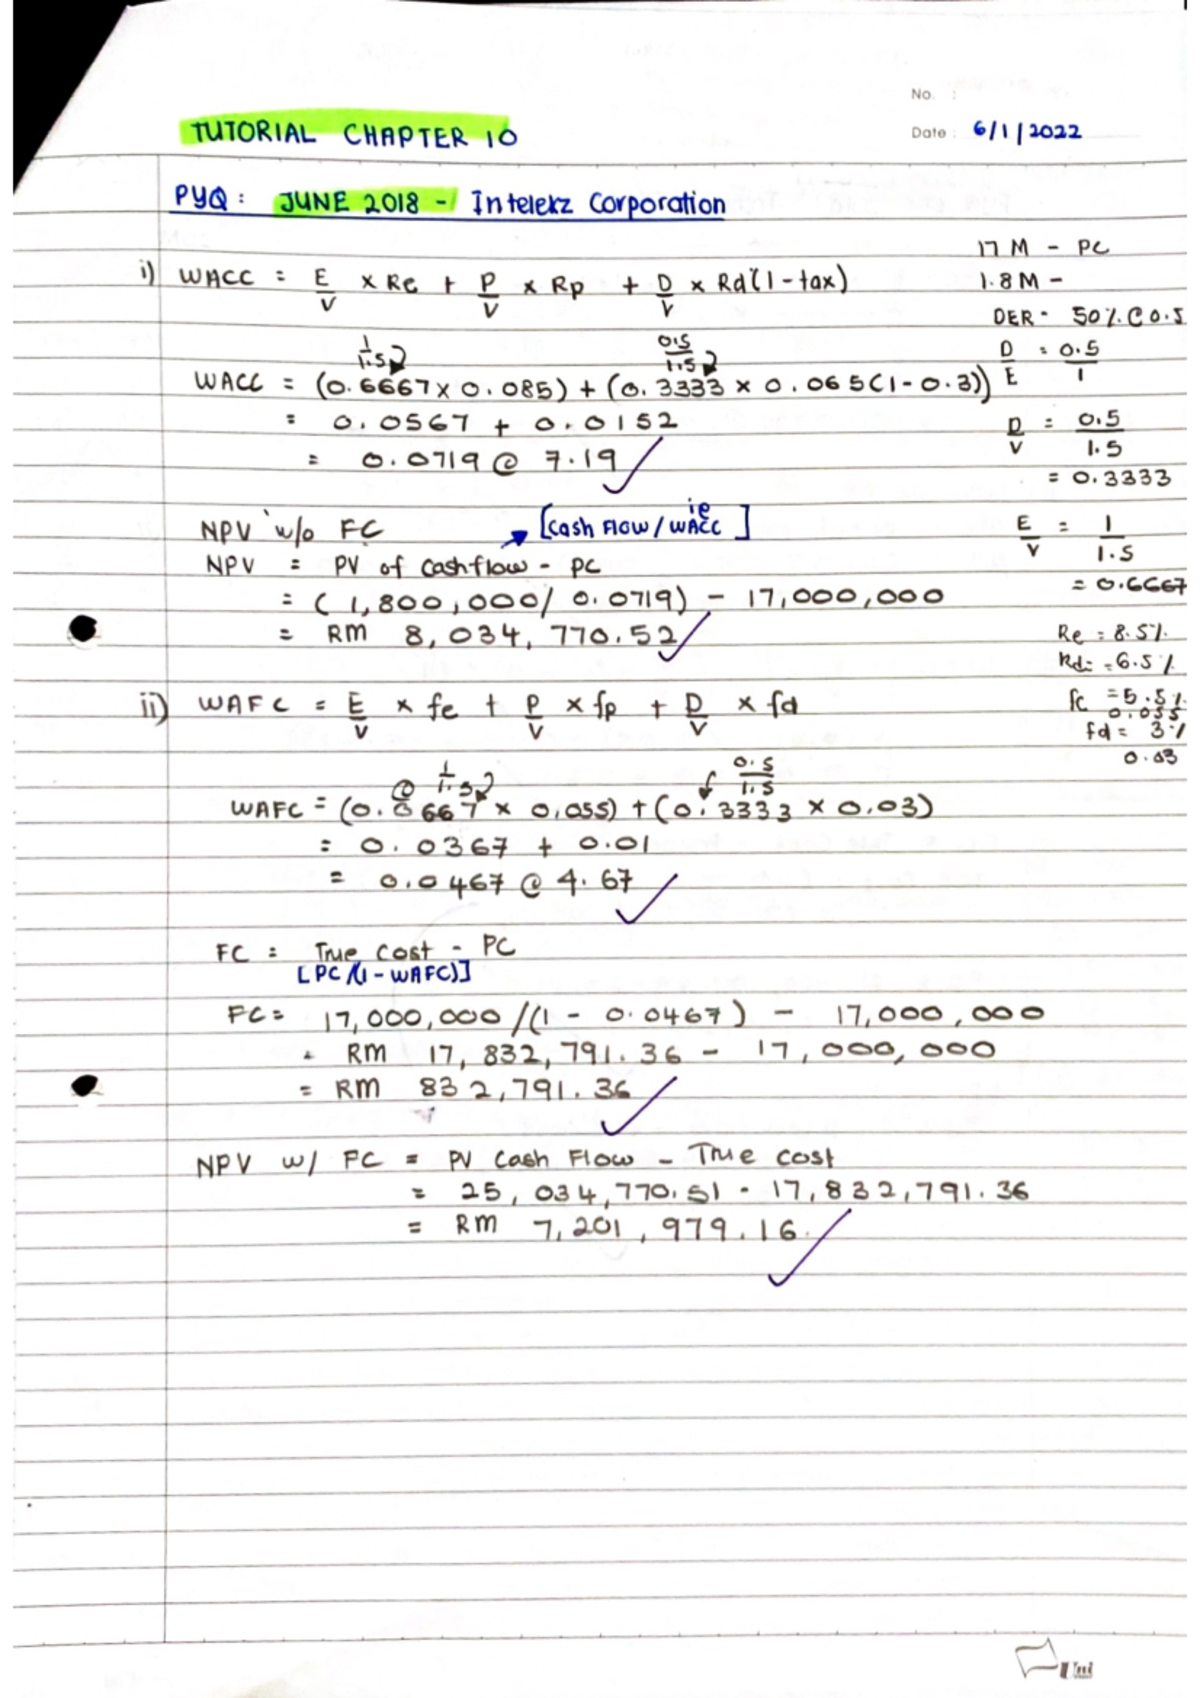 No. :
TUTORIAL CHAPTER 10
Date : 6/1/2022
PYQ : JUNE 2018 - Intelekz Corporation
17 M - PC
1.8 M -
DER - 50% @ 0.5
D/E = 0.5/1
D/V = 0.5/1.5
= 0.3333
E/V = 1/1.5
= 0.6667
Re = 8.5%
Rd = 6.5%
fc = 5.5%
0.055
fd = 3%
0.03
i) WACC = E/V x Re + P/V x Rp + D/V x Rd (1 - tax)
1/1.5 0.5/1.5
WACC = (0.6667 x 0.085) + (0.3333 x 0.065(1 - 0.3))
= 0.0567 + 0.0152
= 0.0719 @ 7.19
NPV w/o FC
[Cash Flow / WACC ie]
NPV = PV of cashflow - PC
= (1,800,000 / 0.0719) - 17,000,000
= RM 8,034,770.52
ii) WAFC = E/V x fe + P/V x fp + D/V x fd
@ 1/1.5 0.5/1.5
WAFC = (0.6667 x 0.055) + (0.3333 x 0.03)
= 0.0367 + 0.01
= 0.0467 @ 4.67
FC = True Cost - PC
[PC/(1 - WAFC)]
FC = 17,000,000 /(1 - 0.0467) - 17,000,000
= RM 17,832,791.36 - 17,000,000
= RM 832,791.36
NPV w/ FC = PV Cash Flow - True cost
= 25,034,770.51 - 17,832,791.36
= RM 7,201,979.16